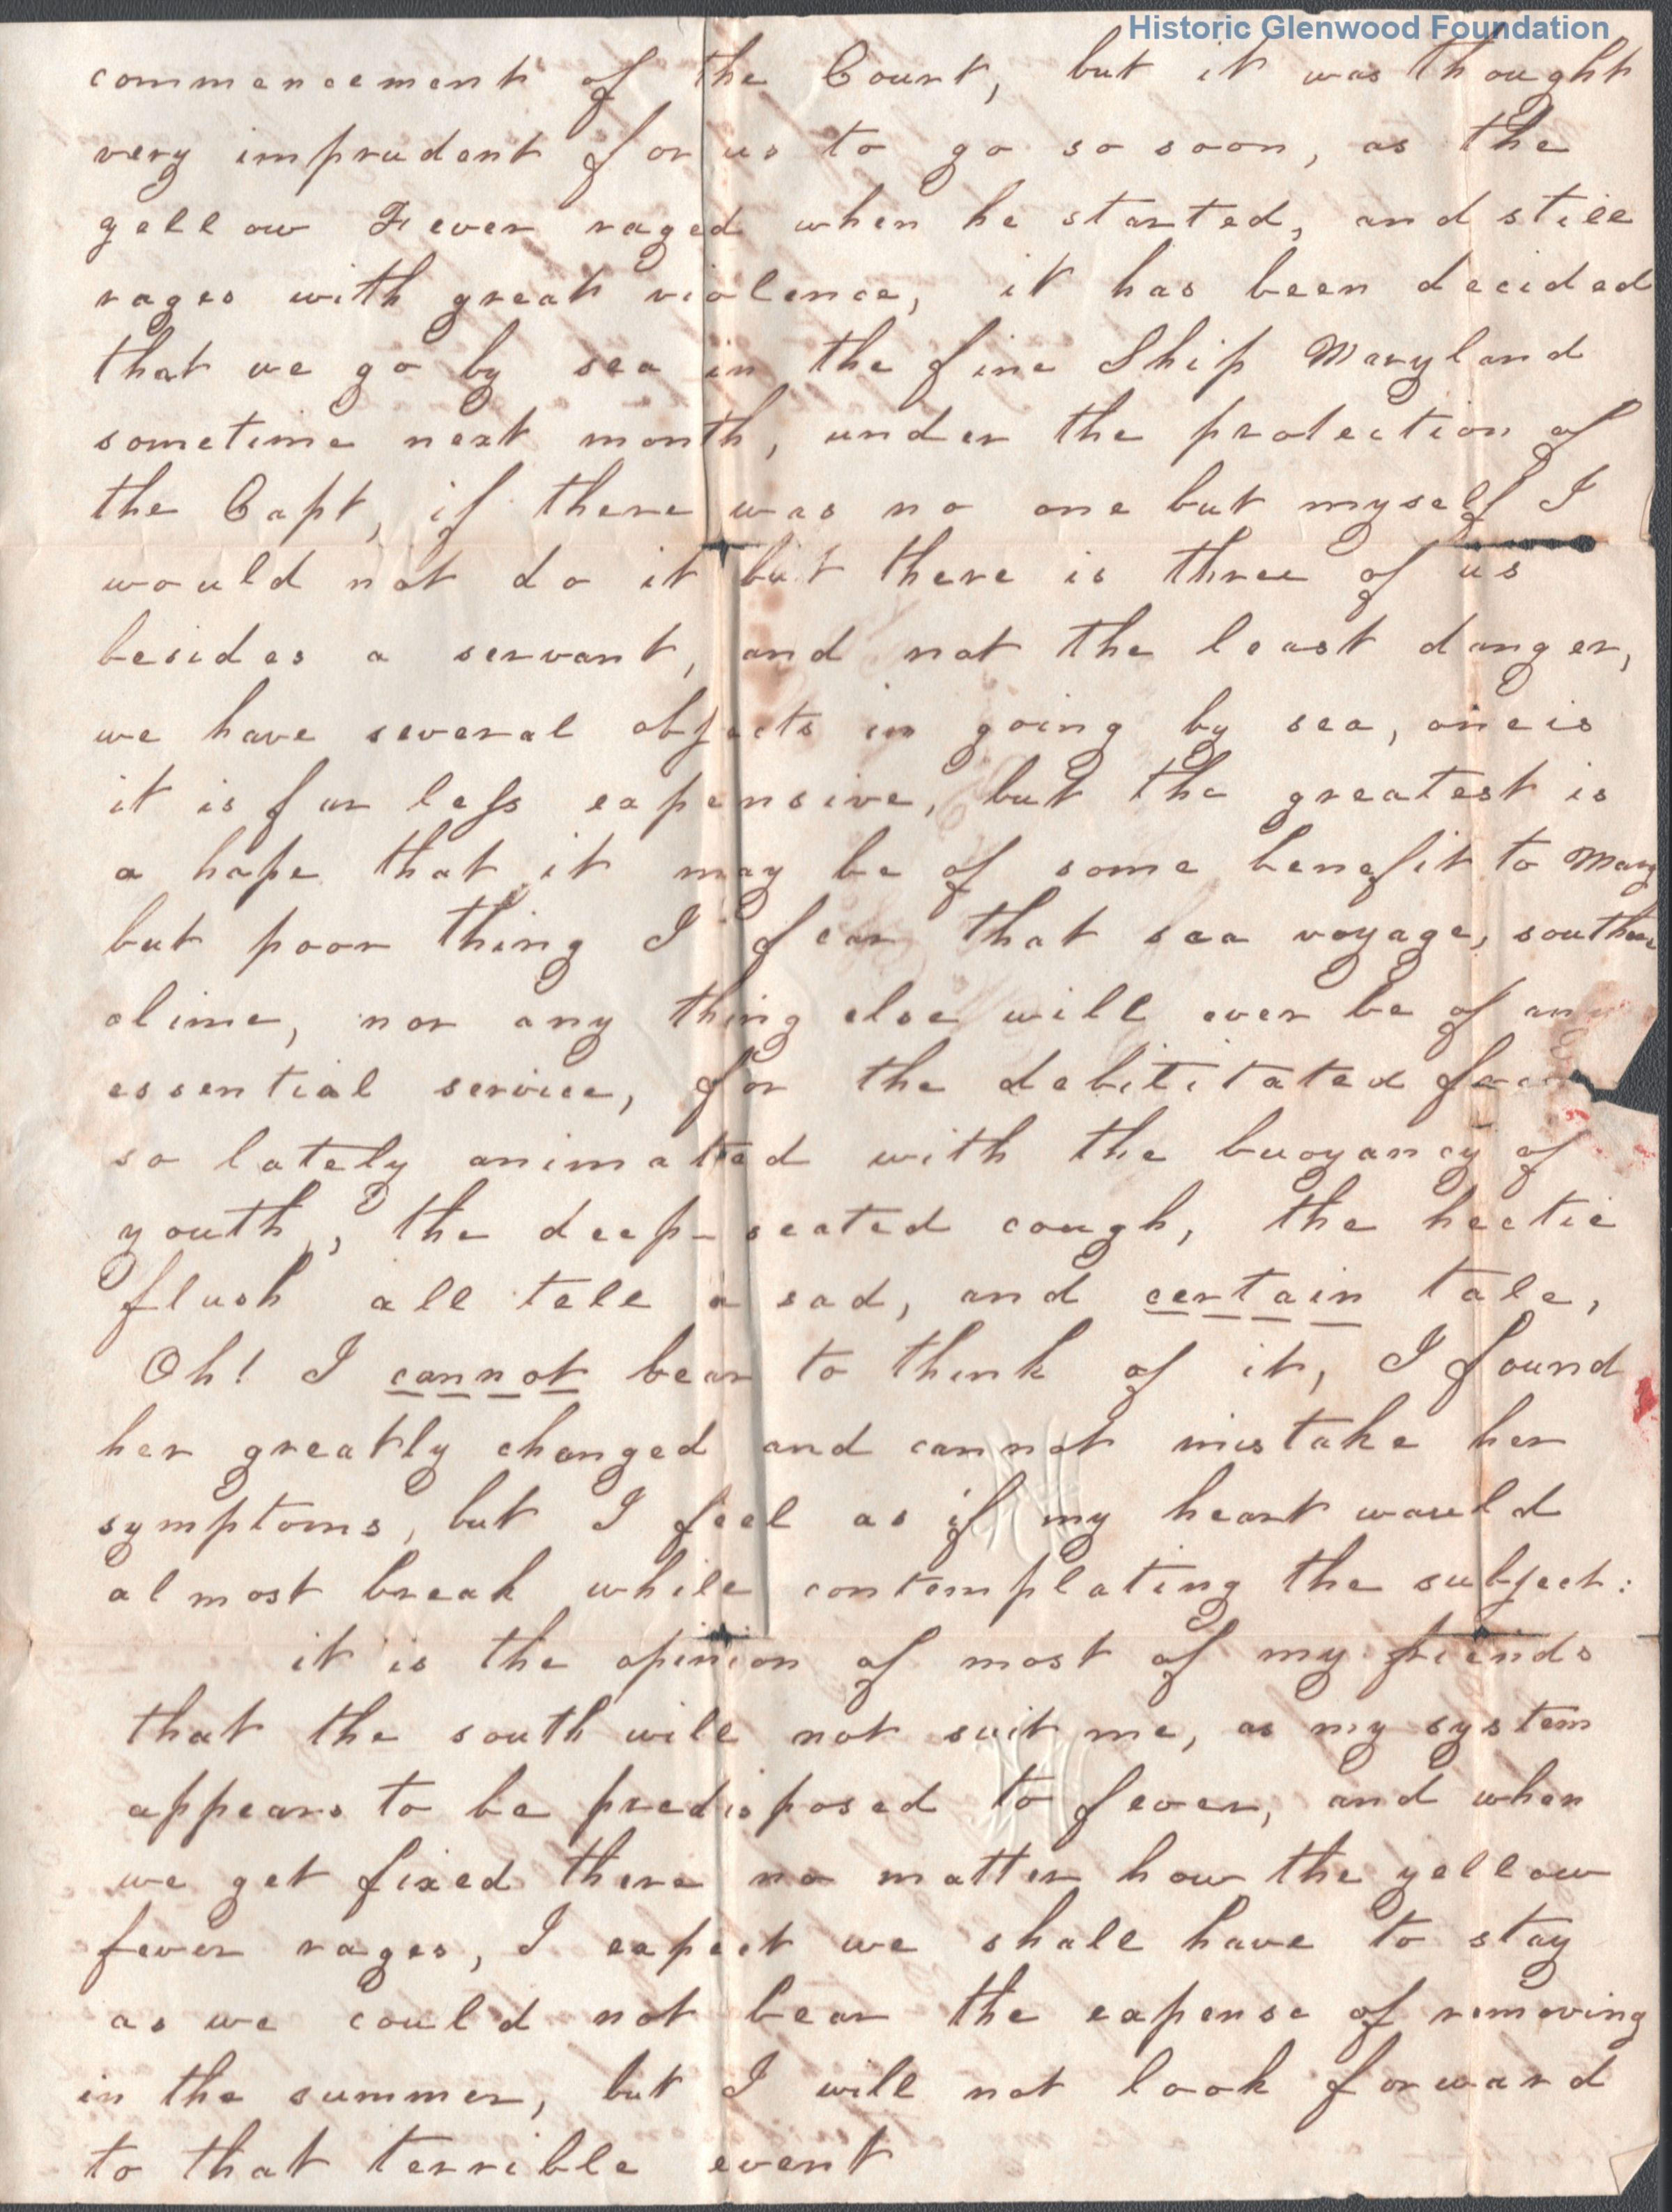 Historic Glenwood Foundation
commencement of the Court, but it was thought
very imprudent for us to go so soon, as the
yellow Fever raged when he started, and still
rages with great violence, it has been decided
that we go by sea in the fine Ship Maryland
sometime next month, under the protection of
the Capt, if there was no one but myself I
would not do it but there is three of us
besides a servant, and not the least danger,
we have several objects in going by sea, one is
it is far less expensive, but the greatest is
a hope that it may be of some benefit to Mary
but poor thing I fear that sea voyage, southern
clime, nor any thing else will ever be of any
essential service, for the debilitated
so lately animated with the buoyancy of
youth, the deep-seated cough, the hectic
flush all tell a sad, and certain tale,
Oh! I cannot bear to think of it, I found
her greatly changed and cannot mistake her
symptoms, but I feel as if my heart would
almost break while contemplating the subject:
it is the opinion of most of my friends
that the south will not suit me, as my system
appears to be predisposed to fever, and when
we get fixed there no matter how the yellow
fever rages, I expect we shall have to stay
as we could not bear the expense of removing
in the summer, but I will not look forward
to that terrible event